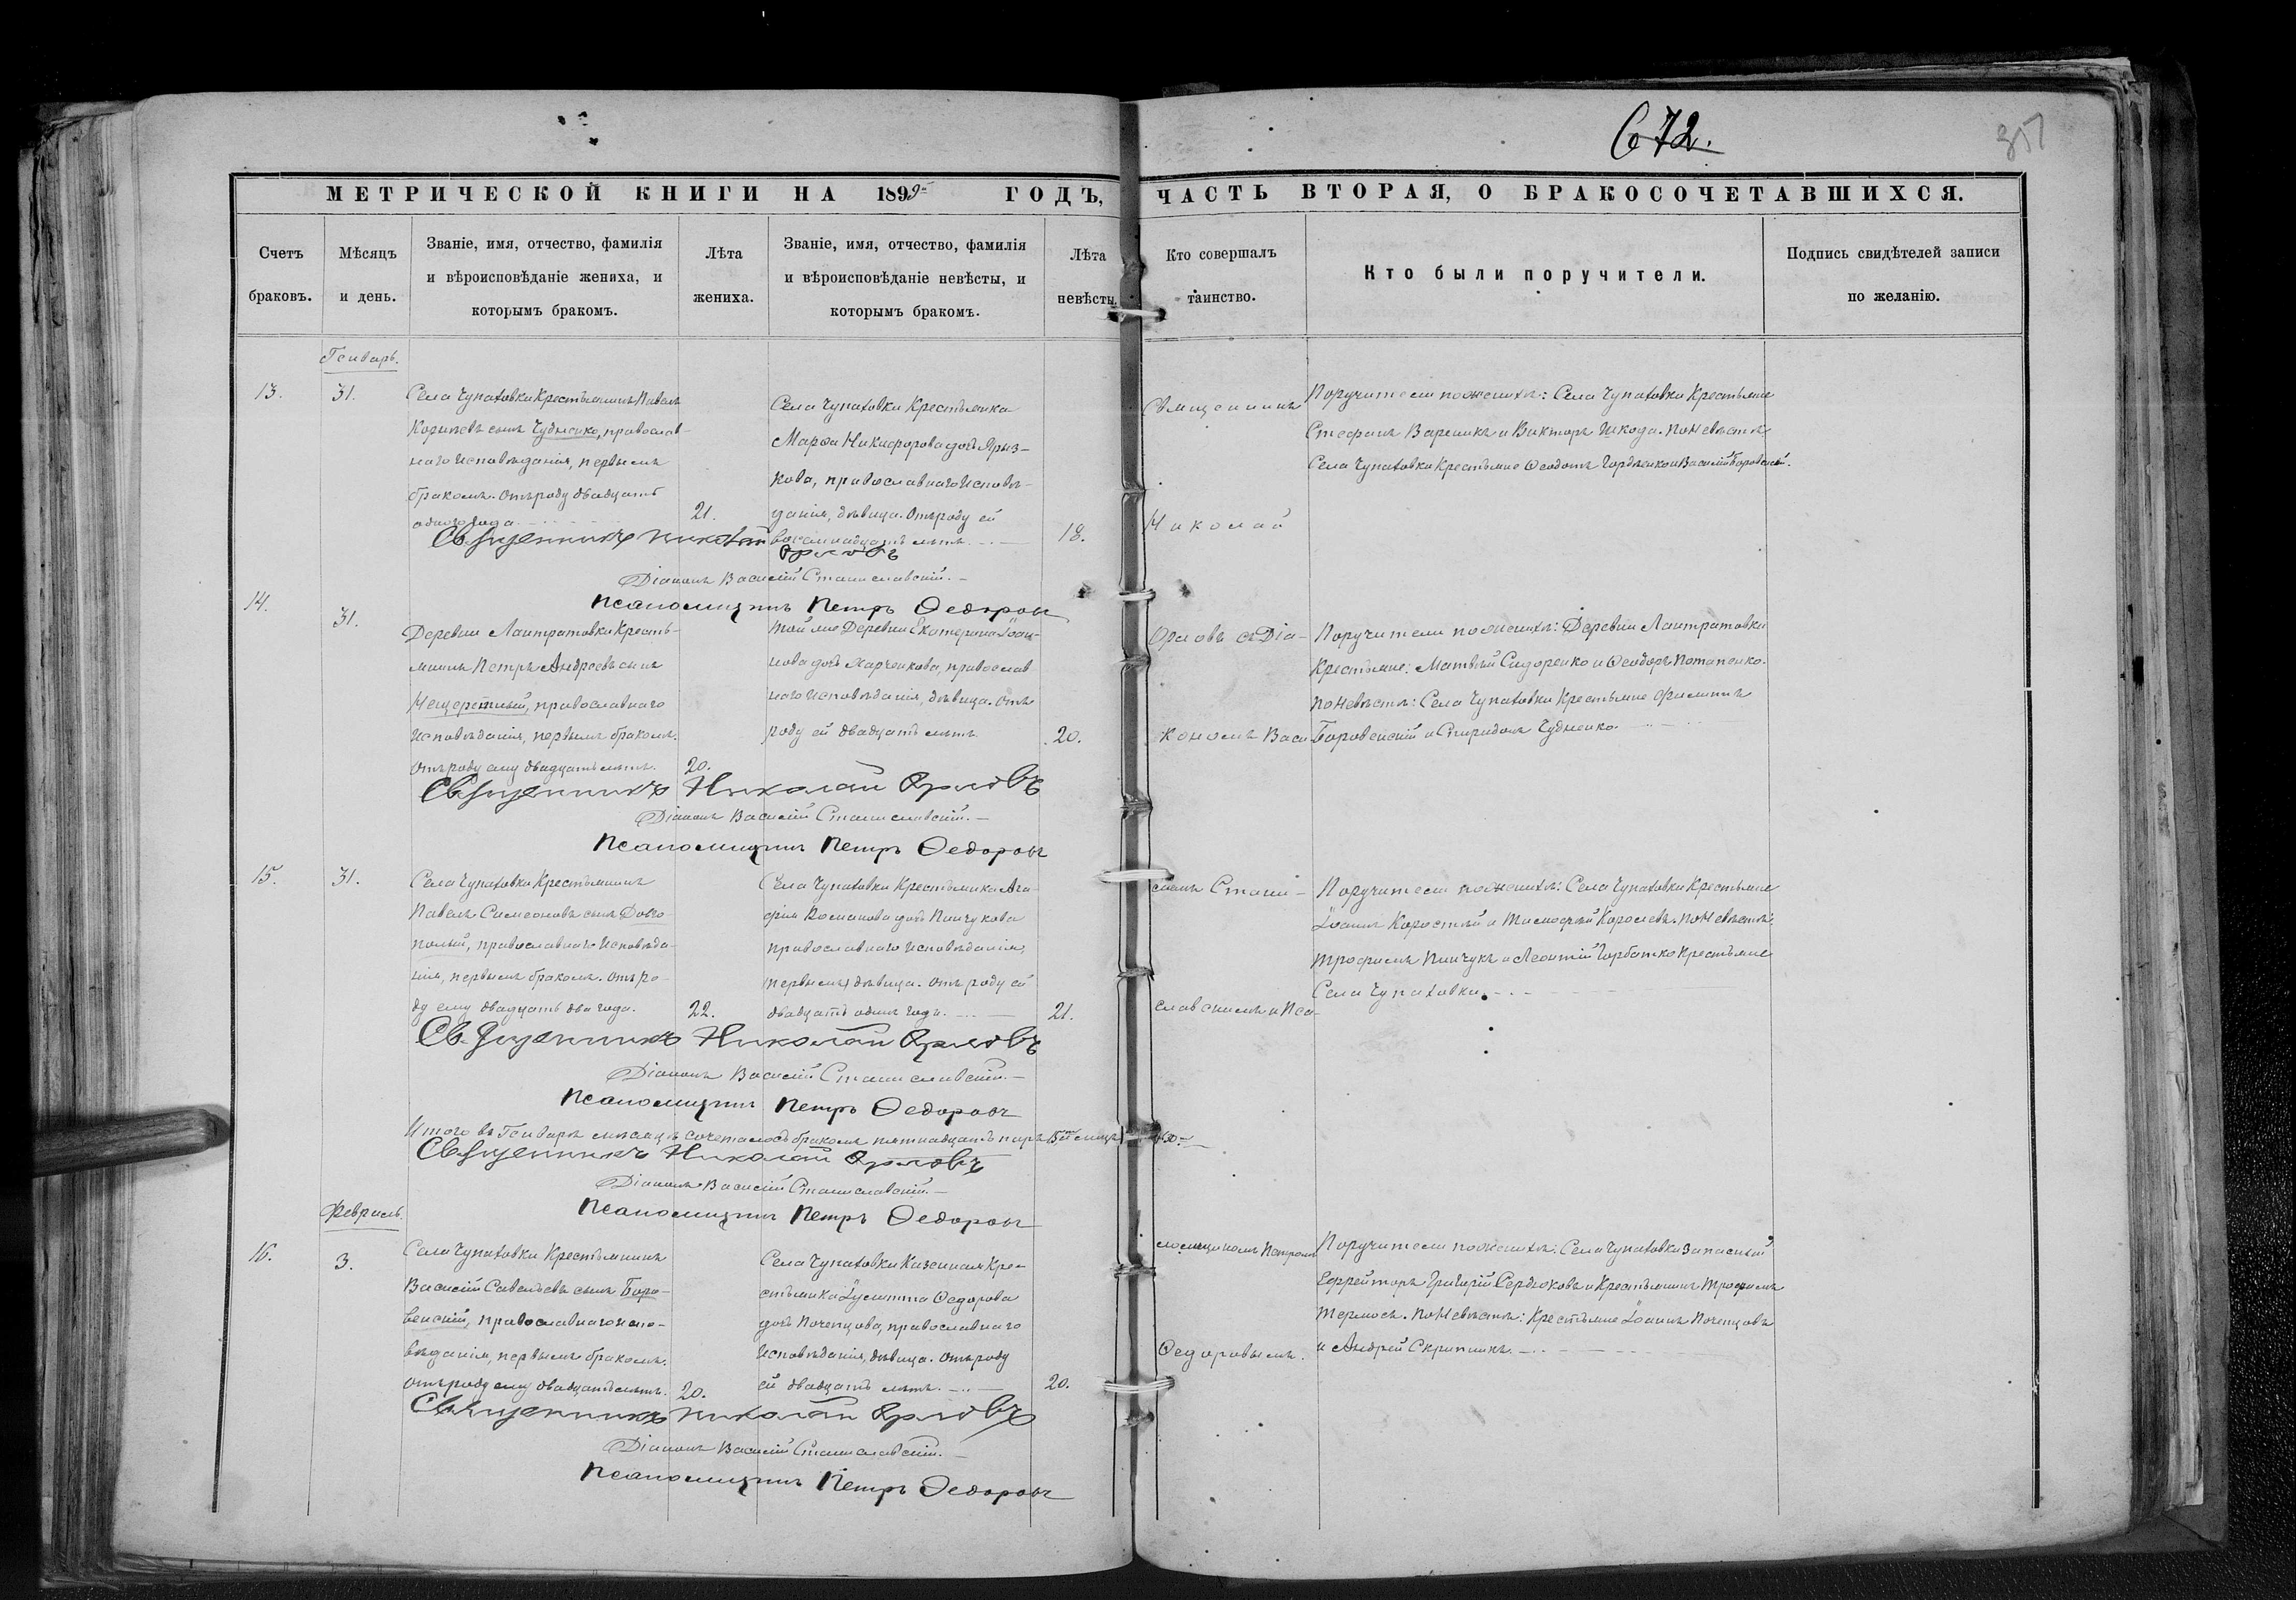 672.
357
МЕТРИЧЕСКОЙ КНИГИ НА 1899 ГОДЪ, ЧАСТЬ ВТОРАЯ, О БРАКОСОЧЕТАВШИХСЯ.
Счетъ браковъ.
Мѣсяцъ и день.
Званіе, имя, отчество, фамилія
и вѣроисповѣданіе жениха, и
которымъ бракомъ.
Лѣта жениха.
Званіе, имя, отчество, фамилія
и вѣроисповѣданіе невѣсты, и
которымъ бракомъ.
Лѣта невѣсты.
Кто совершалъ таинство.
Кто были поручители.
Подпись свидѣтелей записи
по желанію.
Генварь.
13.
31.
Села Чупаховки Крестьянинъ Павелъ
Корніевъ сынъ Чудненко, православ-
наго Исповѣданія, первымъ
бракомъ. Отъ роду двадцать
одного года
21.
Села Чупаховки Крестьянка
Марѳа Никифорова дочь Ярыз-
кова, православнаго Исповѣ-
данія, дѣвица. Отъ роду ей
восемнадцать лѣтъ
18.
Священникъ
Николай
Поручители по женихѣ: Села Чупаховки Крестьяне
Стефанъ Вареникъ и Викторъ Шкода. По Невѣстѣ
Села Чупаховки Крестьяне Ѳеодотъ Гордѣенко и Василій Боровенскій.
Священникъ Николай Орловъ
Діаконъ Василій Станиславскій.
Псаломщикъ Петръ Ѳедоровъ
14.
31.
Деревни Лантратовки Кресть-
янинъ Петръ Андреевъ сынъ
Нещеретный, православнаго
Исповѣданія, первымъ бракомъ.
Отъ роду ему двадцать лѣтъ.
20.
Той же Деревни Екатерина Іоан-
нова дочь Харченкова, православ
наго Исповѣданія, дѣвица. Отъ
роду ей двадцать лѣтъ
20.
Орловъ съ Діа-
кономъ Васи
Поручители по женихѣ: Деревни Лантратовки
Крестьяне: Матвѣй Сидоренко и Ѳеодоръ Потапенко.
По Невѣстѣ: Села Чупаховки Крестьяне Филиппъ
Боровенскій и Спиридонъ Чудненко.
Священникъ Николай Орловъ
Діаконъ Василій Станиславскій.
Псаломщикъ Петръ Ѳедоровъ
15.
31.
Села Чупаховки Крестьянинъ
Павелъ Симеоновъ сынъ Долго-
полый, православнаго Исповѣда-
нія, первымъ бракомъ. Отъ ро-
ду ему двадцать два года.
22.
Села Чупаховки Крестьянка Ага-
фія Романова дочь Пинчукова
православнаго Исповѣданія,
первымъ, дѣвица. Отъ роду ей
двадцать одинъ годъ.
21.
ліемъ Стани-
славскимъ и Пса-
Поручители по женихѣ: Села Чупаховки Крестьяне
Іоаннъ Коростій и Тимоѳей Королевъ. По Невѣстѣ:
Трофимъ Пинчукъ и Леонтій Горбатко Крестьяне
Села Чупаховки.
Священникъ Николай Орловъ
Діаконъ Василій Станиславскій.
Псаломщикъ Петръ Ѳедоровъ
Итого въ Генварѣ мѣсяцѣ сочеталось бракомъ пятнадцать паръ
Священникъ Николай Орловъ
Діаконъ Василій Станиславскій.
Псаломщикъ Петръ Ѳедоровъ
Февраль.
16.
3.
Села Чупаховки Крестьянинъ
Василій Савельевъ сынъ Боро-
венскій, православнаго испо-
вѣданія, первымъ бракомъ.
Отъ роду ему двадцать лѣтъ.
20.
Села Чупаховки Казенная Кре-
стьянка Іулитта Ѳедорова
дочь Поченцова, православнаго
Исповѣданія, дѣвица. Отъ роду
ей двадцать лѣтъ.
20.
ломщикомъ Петромъ
Ѳедоровымъ.
Поручители по женихѣ: Села Чупаховки Запасный
Ефрейторъ Григорій Сердюковъ и Крестьянинъ Трофимъ
По Невѣстѣ: Крестьяне Іоаннъ Поченцовъ
и Андрей Скрипникъ.
Священникъ Николай Орловъ
Діаконъ Василій Станиславскій.
Псаломщикъ Петръ Ѳедоровъ